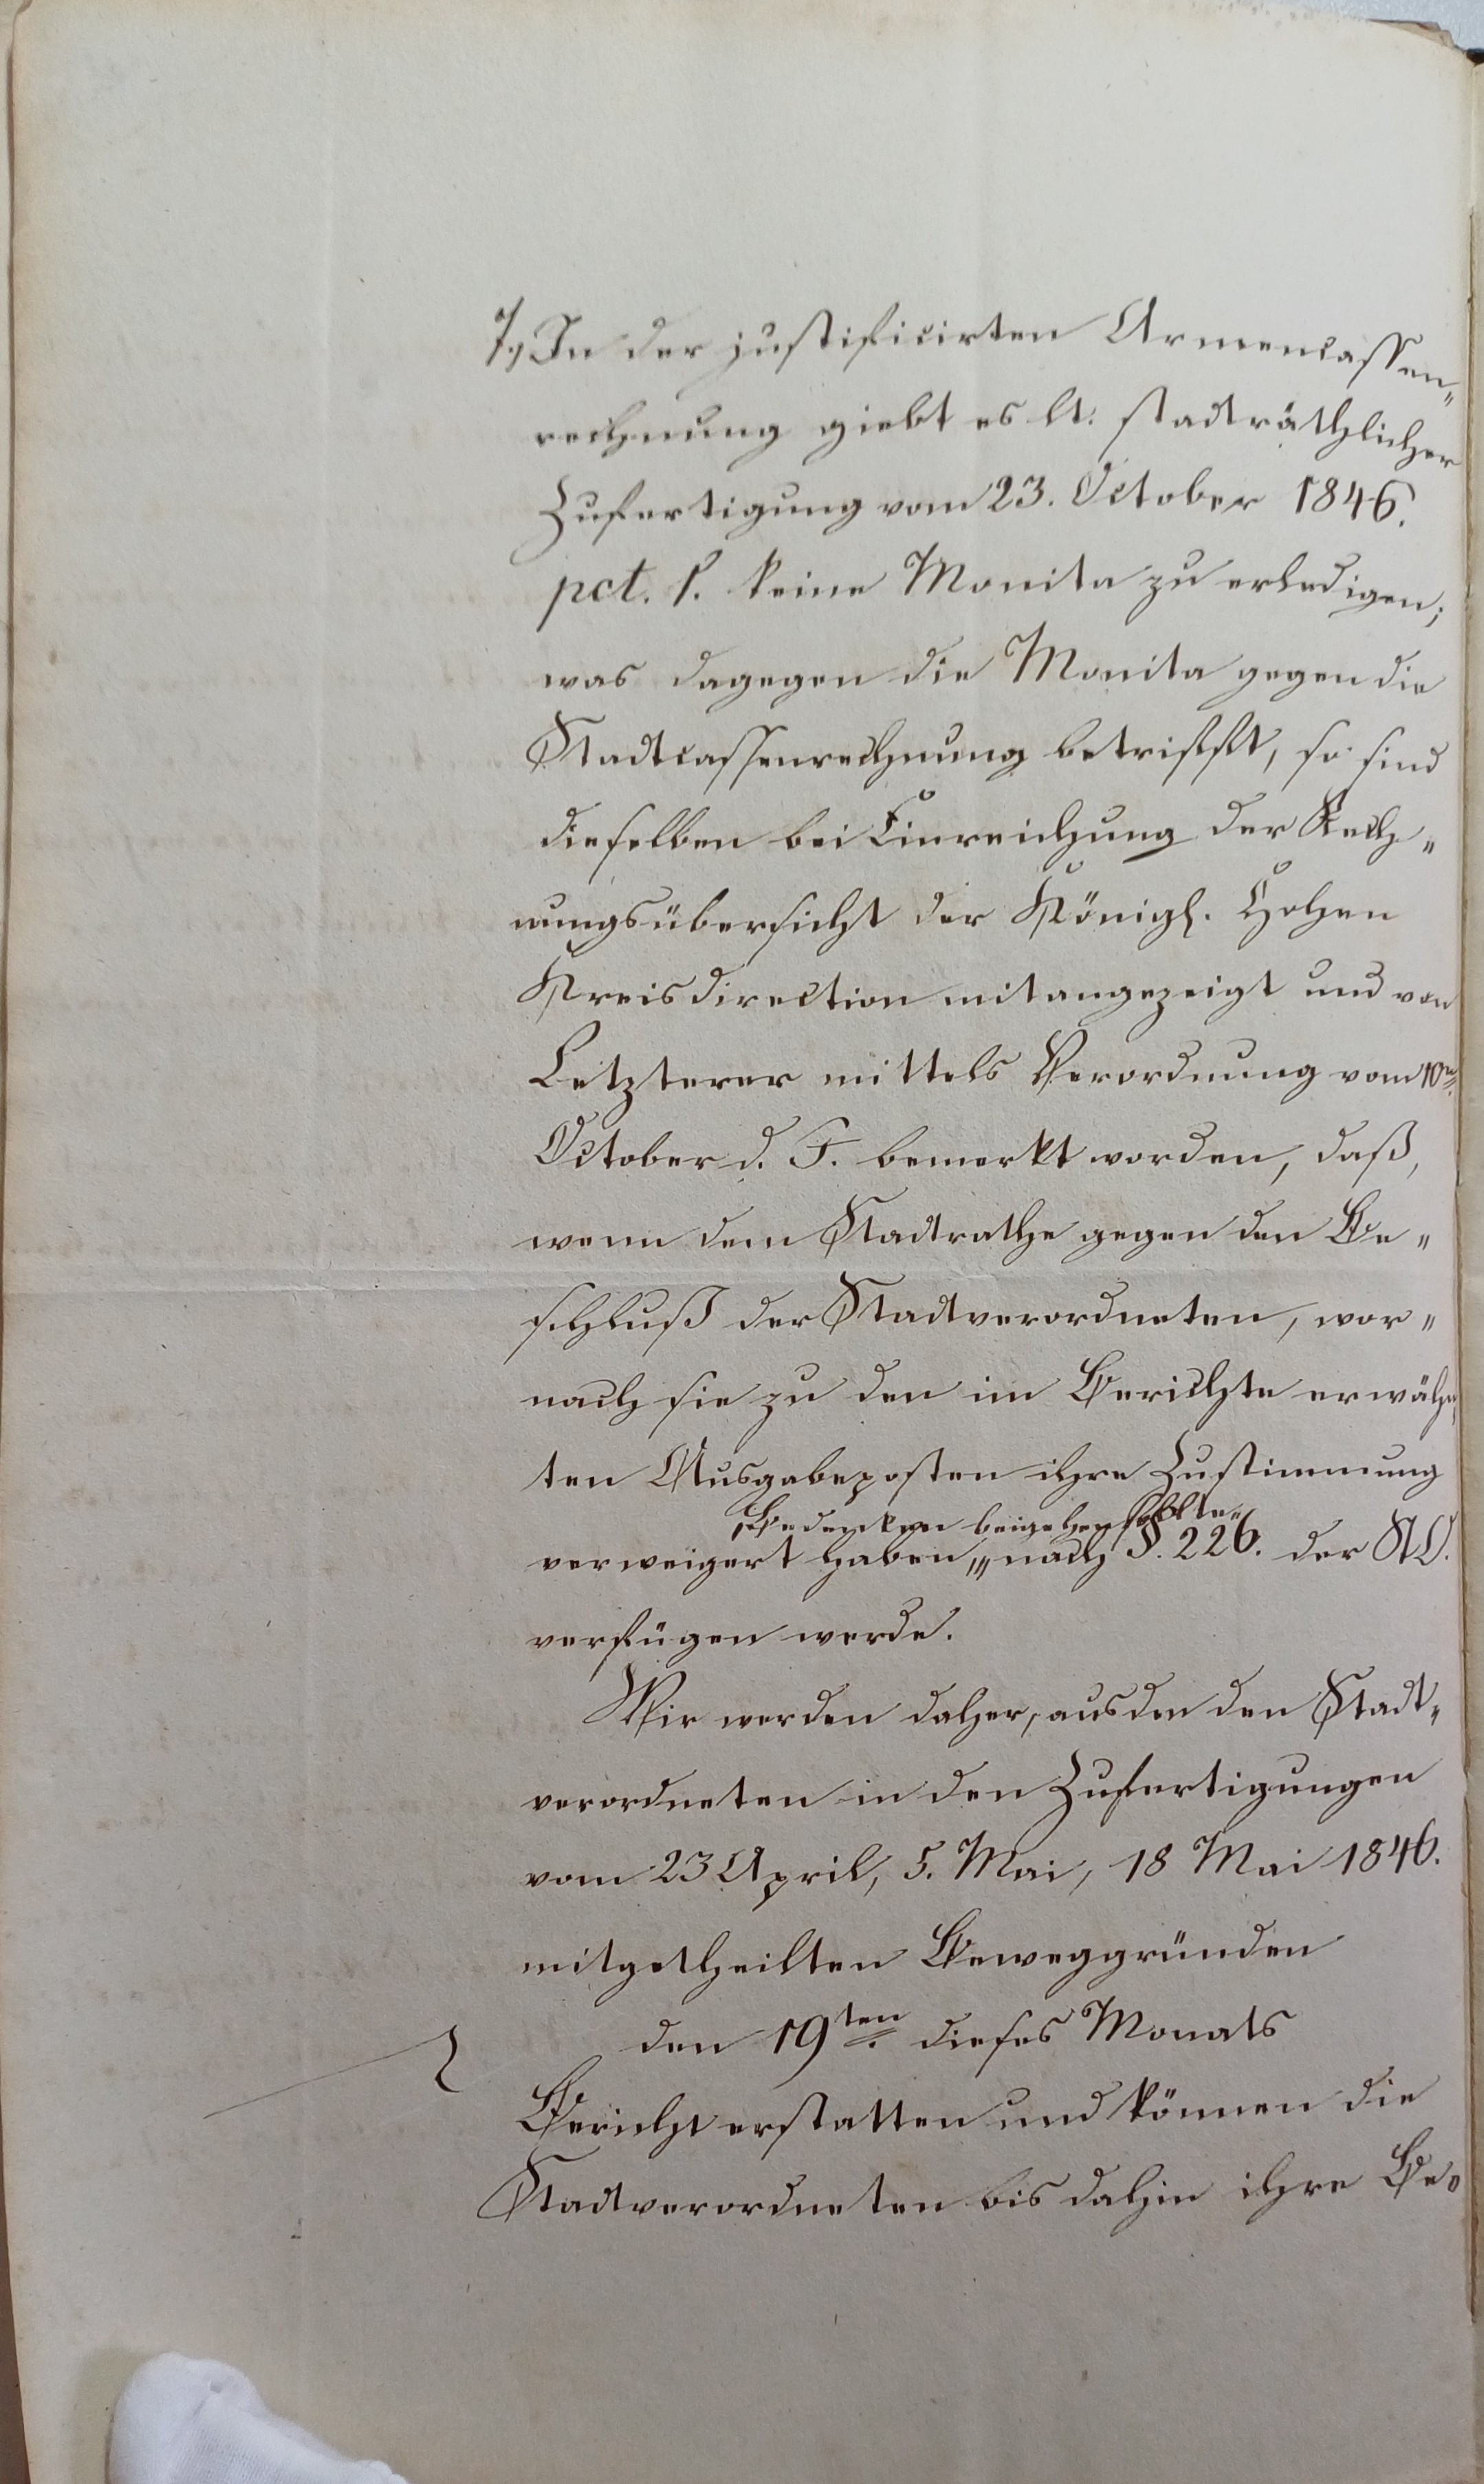 7., In der justificirten Armencassen„
rechnung giebt es lt. stadträthlicher
Zufertigung vom 23. October 1846.
pct. 1. keine Monita zu erledigen;
was dagegen die Monita gegen die
Stadtcassenrechnung betrifft, so sind
dieselben bei Einreichung der Rech„
nungsübersicht der Königl. Hohen
Kreisdirection mitangezeigt und von
Letzterer mittels Verordnung vom 10n.
October d. J. bemerkt worden, daß,
wenn dem Stadtrathe gegen den Be„
schluß der Stadtverordneten, wor„
nach sie zu den im Berichte erwähn„
ten Ausgabeposten ihre Zustimmung
„Bedenken beigehen sollte„
verweigert haben, „ nach §. 226. der StO.
verfügen werde.
Wir werden daher, aus den den Stadt„
verordneten in den Zufertigungen
vom 23 April, 5. Mai, 18 Mai 1846.
mitgetheilten Beweggründen
den 19ten. dieses Monats
Bericht erstatten und können die
Stadtverordneten bis dahin ihre Be„